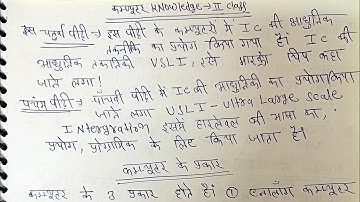 कम्प्यूटर Knowledge → II class
चतुर्थ पीढ़ी → इस पीढ़ी के कम्प्यूटरो में I C की आधुनिक
तकनीकी का प्रयोग किया गया है। I C की
आधुनिक तकनीकी VSLI, इसे भारकी चिप कहा
जाने लगा!
पंचम पीढ़ी → पाँचवी पीढ़ी में I C की आधुनिकी का प्रयोग किया
जाने लगा USLI - Ultra Large Scale
Intergration इसमें हाइलेवल की भाषा का
प्रयोग, प्रोग्रामिंग के लिए किया जाता है।
कम्प्यूटर के प्रकार
कम्प्यूटर के 3 प्रकार होते हैं। ① एनालॉग कम्प्यूटर